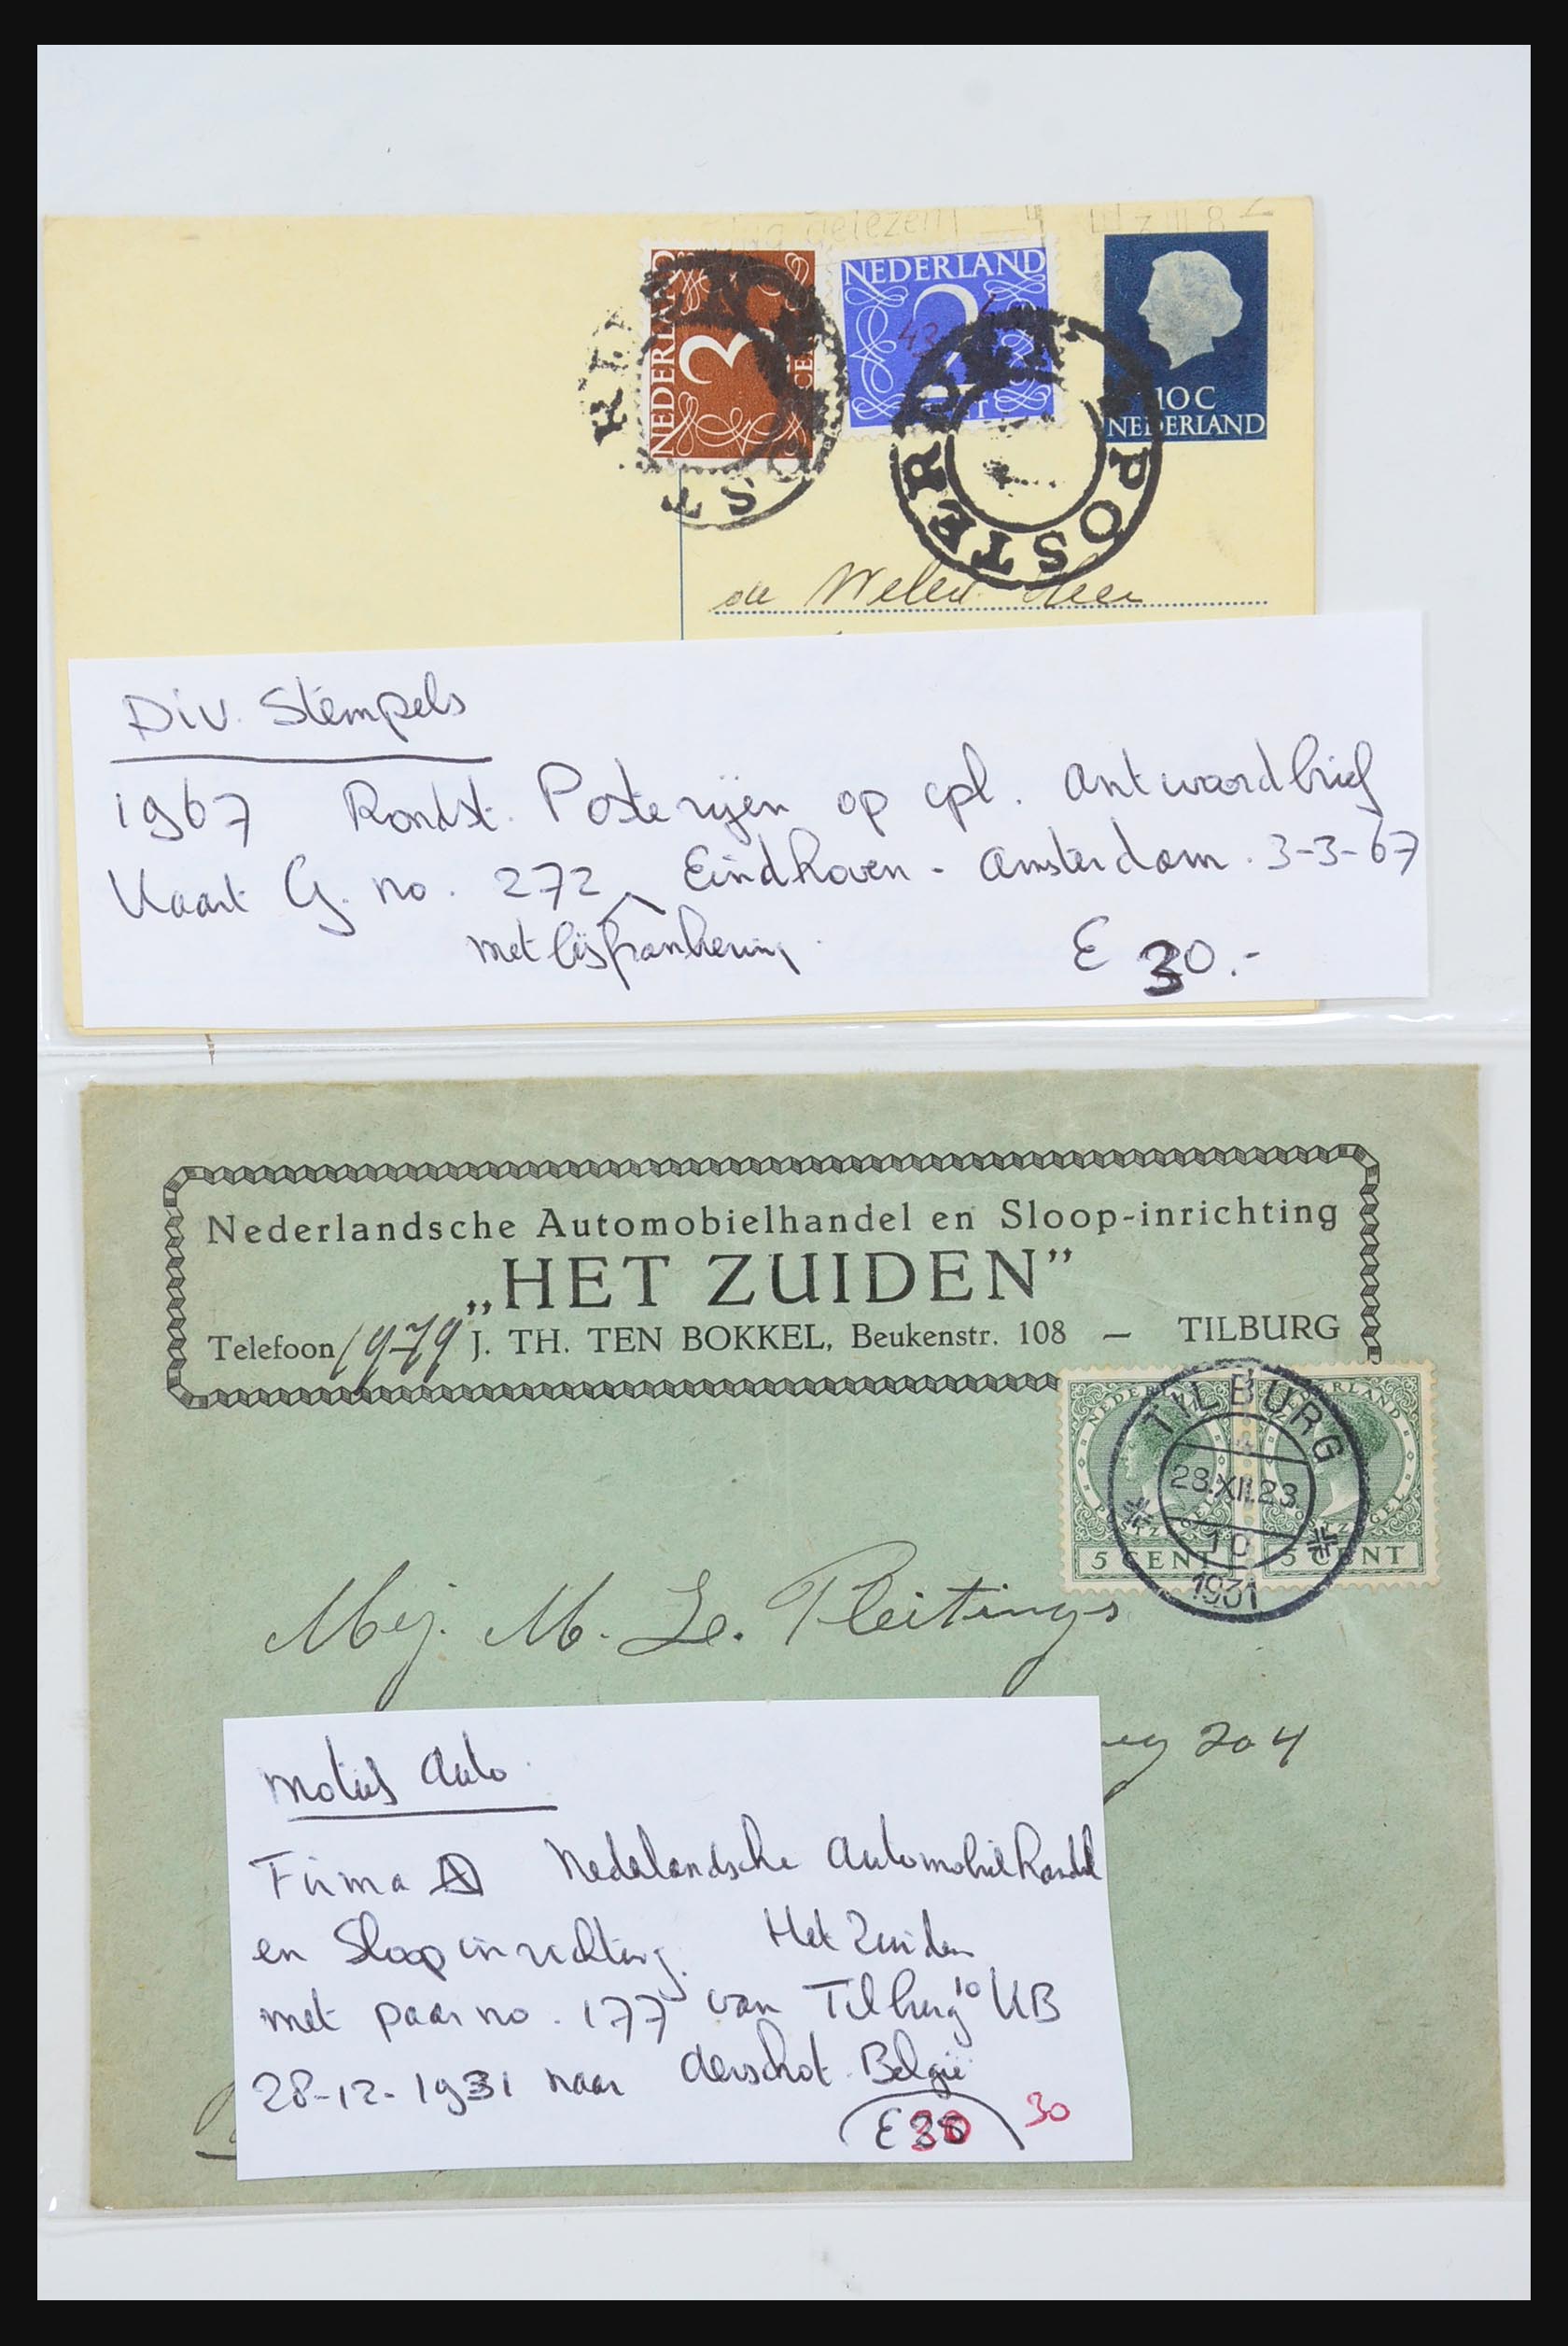 NEDERLAND
3
CE
NEDERLAND
2
NT
10 C
NEDERLAND
POST
POSTERIJEN
de Heer
Div. Stempels
1967 Rondst. Posterijen op cpl. antwoordbrief
Kaart G. no. 272 Eindhoven - Amsterdam. 3-3-67
met bijfrankering.
E 30.-
Nederlandsche Automobielhandel en Sloop-inrichting
„HET ZUIDEN”
Telefoon 1979 J. TH. TEN BOKKEL, Beukenstr. 108 — TILBURG
NEDERLAND
POSTZEGEL
5 CENT
NEDERLAND
POSTZEGEL
5 CENT
TILBURG
28.XII.23
10
1931
Mej. M. Le. Pleitings
weg 204
Motief Auto.
Firma Nederlandsche Automobielhandel
en Sloopinrichting. Het Zuiden
met paar no. 177 van Tilburg 10 KB
28-12-1931 naar Aerschot. België
E 30 30